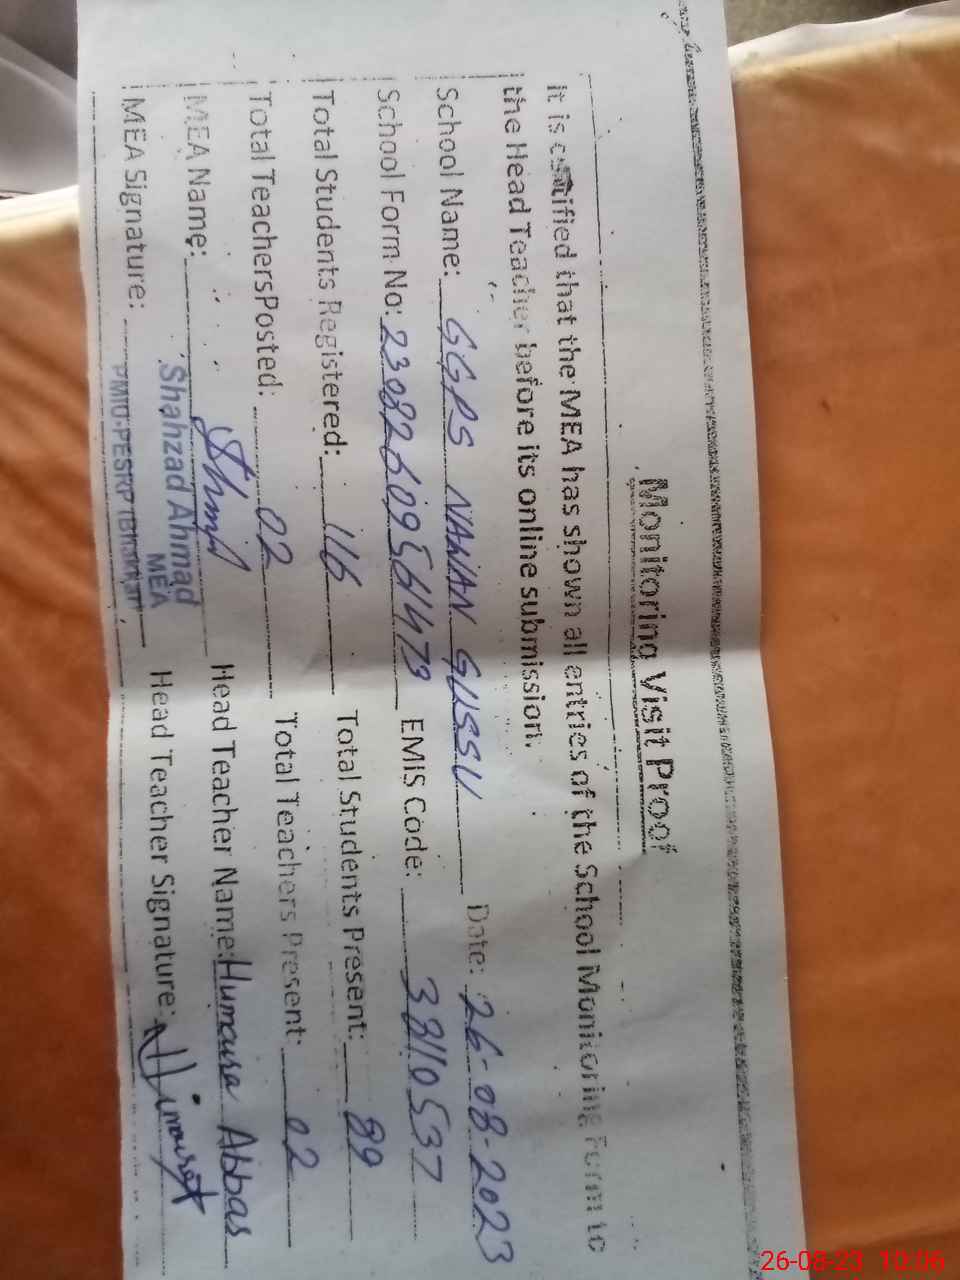 Monitoring Visit Proof
It is certified that the MEA has shown all entries of the School Monitoring Form to
the Head Teacher before its online submission.
School Name: GGPS NAWAN GUSSU Date: 26-08-2023
School Form No: 23082609561473 EMIS Code: 38110537
Total Students Registered: 116 Total Students Present: 89
Total TeachersPosted: 02 Total Teachers Present: 02
MEA Name: Head Teacher Name: Humaira Abbas
Shahzad Ahmad
MEA
MEA Signature: Head Teacher Signature:
PMIU-PESRP (Bhakkar)
26-08-23 10:06